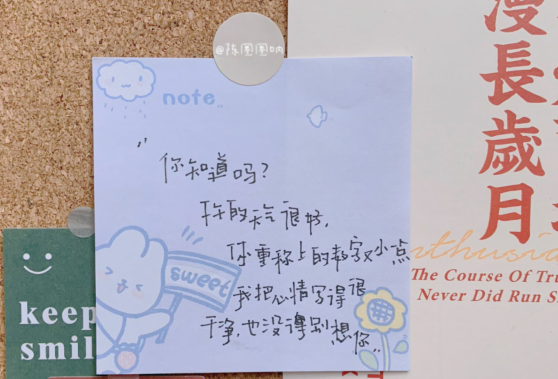 note
你知道吗?
下午的天气很好,
体重称上的数字又小点
我把心情写得很
干净也没特别想你..
sweet
keep
smil
漫長歲月
nthusia
The Course Of Tr
Never Did Run S